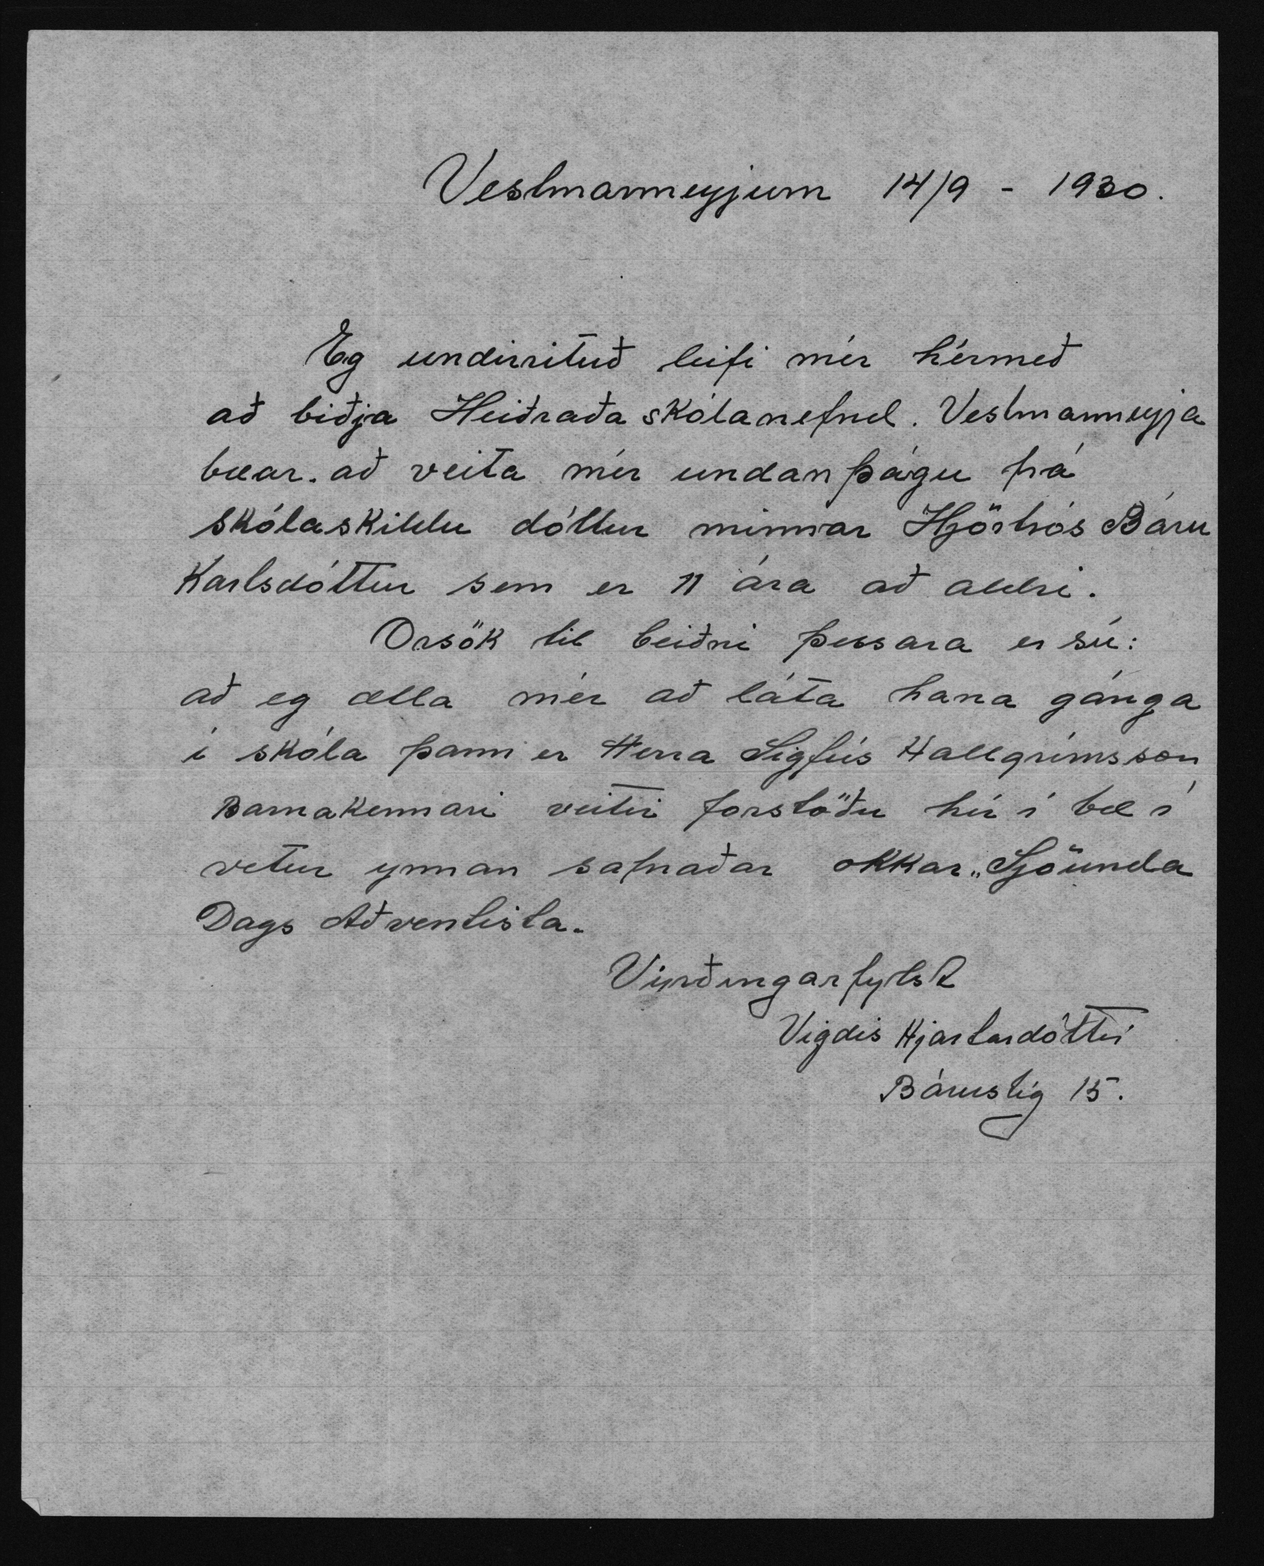 Vestmanneyjum 14/9 - 1930.
Eg undirrituð leifi mér hérmeð
að biðja Heiðraða skólanefnd. Vestmanneyja
bæar. að veita mér undanþágu frá
skólaskildu dóttur minnar Hjörtrós Báru
Karlsdóttur sem er 11 ára að aldri.
Orsök til beiðni þessara er sú:
að eg ætla mér að láta hana gánga
í skóla þann er Herra Sigfús Hallgrímsson
Barnakennari veitir forstöðu hér í bæ í
vetur ynnan safnaðar okkar „Sjöunda
Dags Aðventista.
Virðingarfylst
Vigdís Hjartardóttir
Bárustíg 15.